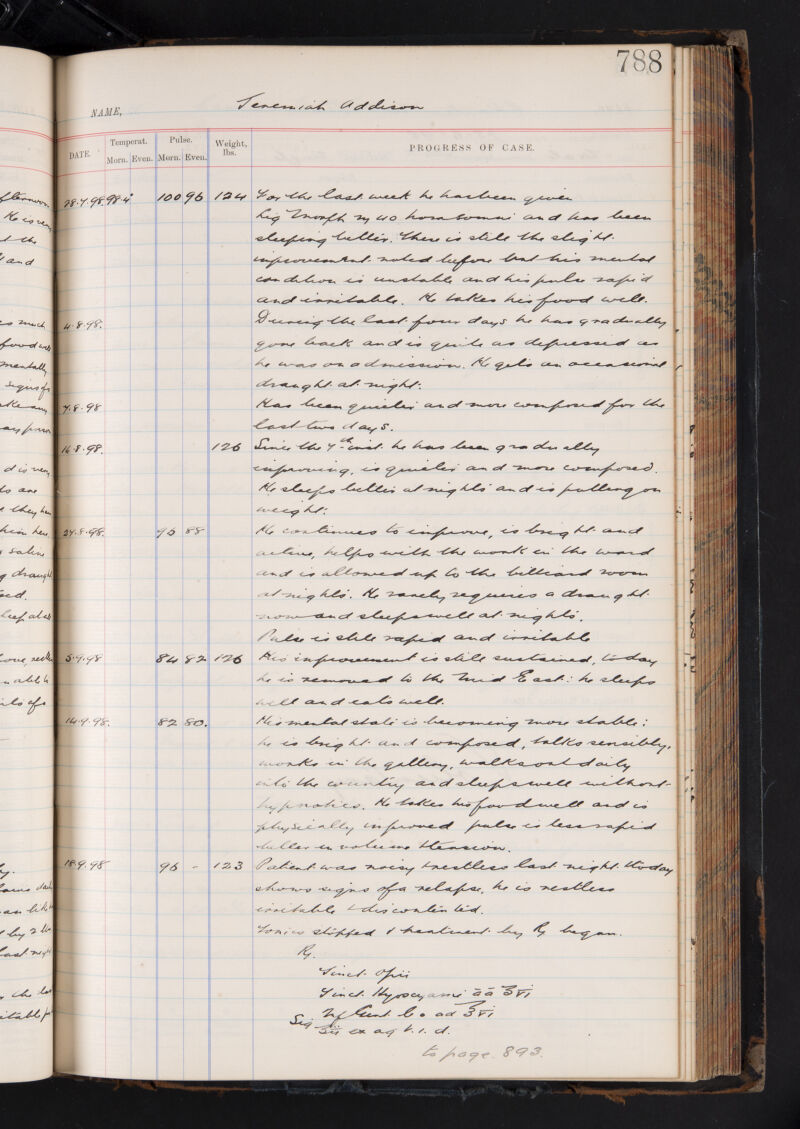 788
NAME, Jeremiah Addison
DATE. Temperat. Morn. Even. Pulse. Morn. Even. Weight, lbs. PROGRESS OF CASE.
28.7.98 98.4° 100 96 124 For the last week he has been given
Liq Morph ℳ 40 hora somni and has been
sleeping better. There is still the slight
improvement noted before but his mental
condition is unstable and his pulse rapid
and irritable. He takes his food well.
4.8.98. During the last four days he has gradually
gone back and is quite as depressed as
he was on admission. He gets an occasional
draught at night.
7.8.98 Has been quieter and more composed for the
last two days.
16.8.98. 126 Since the 7th inst. he has been gradually
improving, is quieter and more composed.
He sleeps better at nights and is putting on
weight.
24.8.98. 96 88 He continues to improve, is bright and
active, helps with the work in the ward
and is allowed up to the billiard room
at nights. He rarely requires a draught
now and sleeps well at nights.
Pulse is still rapid and irritable
5.9.98 84 82 126 His improvement is still sustained, today
he is removed to the Mid East: he sleeps
well and eats well.
14.9.98. 82 80. His mental state is becoming more stable:
he is bright and composed, talks sensibly,
works in the gallery, walks out daily
into the country and sleeps well without
hypnotics. He takes his food well and is
physically improved pulse is less rapid
fuller in volume & tension.
18.9.98 96 - 123 Patient was noisy & restless last night & today
shows signs of a relapse. he is restless
irritable & discontented.
Tonics stopped & treatment by ℞ began.
℞.
Tinct. Opii
Tinct. Hyoscyami āā ʒvi
Inf Gent. Co ad ℥vi
Sig ℥ss ex aq t.i.d.
to page. 893.